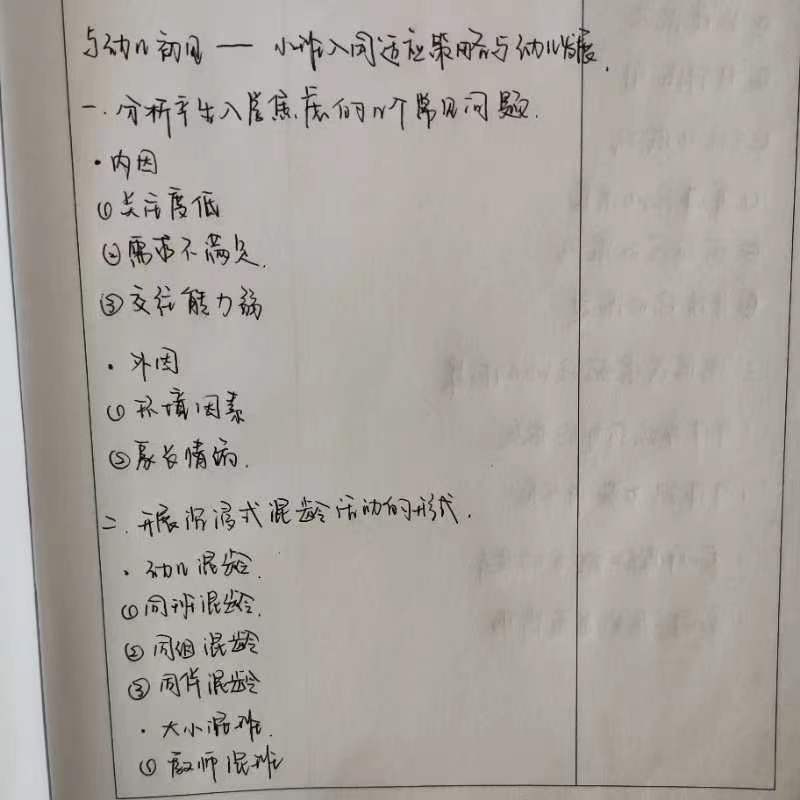 与幼儿初见——小班入园适应策略与幼儿发展.
一.分析产生入园焦虑的几个常见问题.
·内因
①关注度低
②需求不满足.
③交往能力弱
·外因
①环境因素
②家长情绪.
二.开展沉浸式混龄活动的形式.
·幼儿混龄.
①同班混龄.
②同组混龄
③同伴混龄
·大小混班.
①教师混班